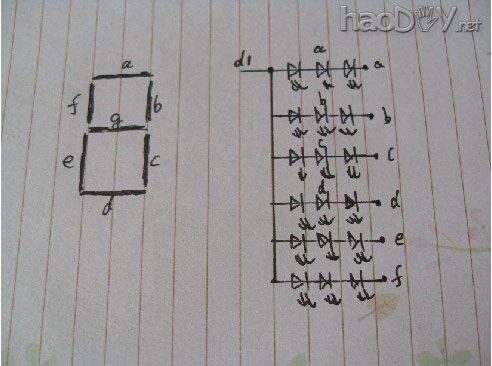 haoDIY.net
a
f
b
g
e
c
d
d1
a
a
b
b
c
c
d
d
e
f